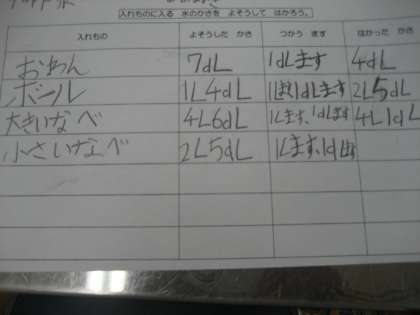 入れものに入る 水のかさを よそうして はかろう。
入れもの よそうした かさ つかう ます はかった かさ
おわん 7dL 1dLます 4dL
ボール 1L4dL 1dLます 2L5dL
大きいなべ 4L6dL 1Lます、1dLます 4L1dL
小さいなべ 2L5dL 1Lます、1dLます